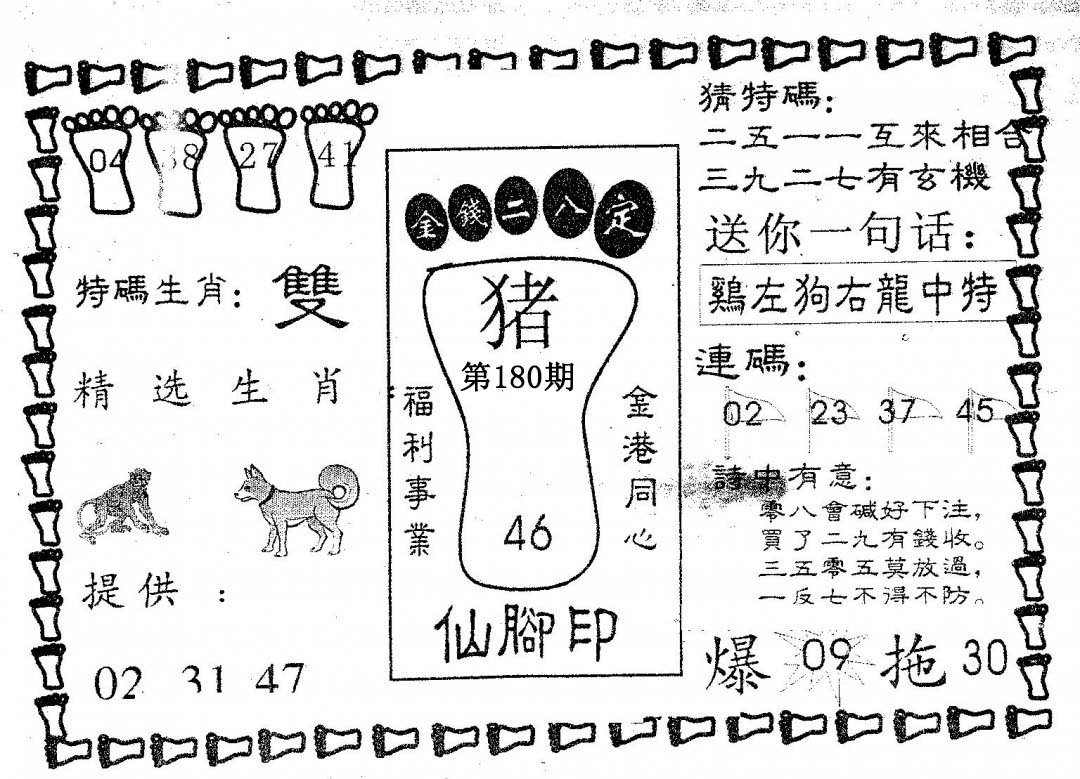 04 38 27 41
特碼生肖：雙
精选生肖
提供：
02 31 47
金錢二八定
猪
第180期
福利事業
金港同心
46
仙腳印
猜特碼：
二五一一互來相合
三九二七有玄機
送你一句话：
鷄左狗右龍中特
連碼：
02 23 37 45
詩中有意：
零八會碱好下注，
買了二九有錢收。
三五零五莫放過，
一反七不得不防。
爆 09 拖 30